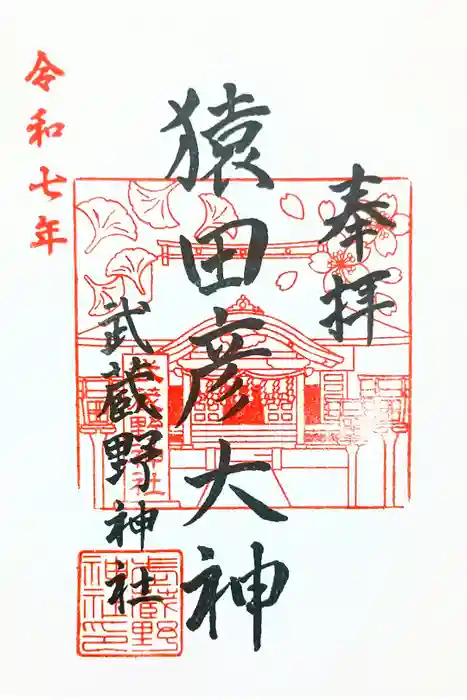 奉拝
猿田彦大神
武蔵野神社
令和七年
武蔵野神社
武蔵野
神社印